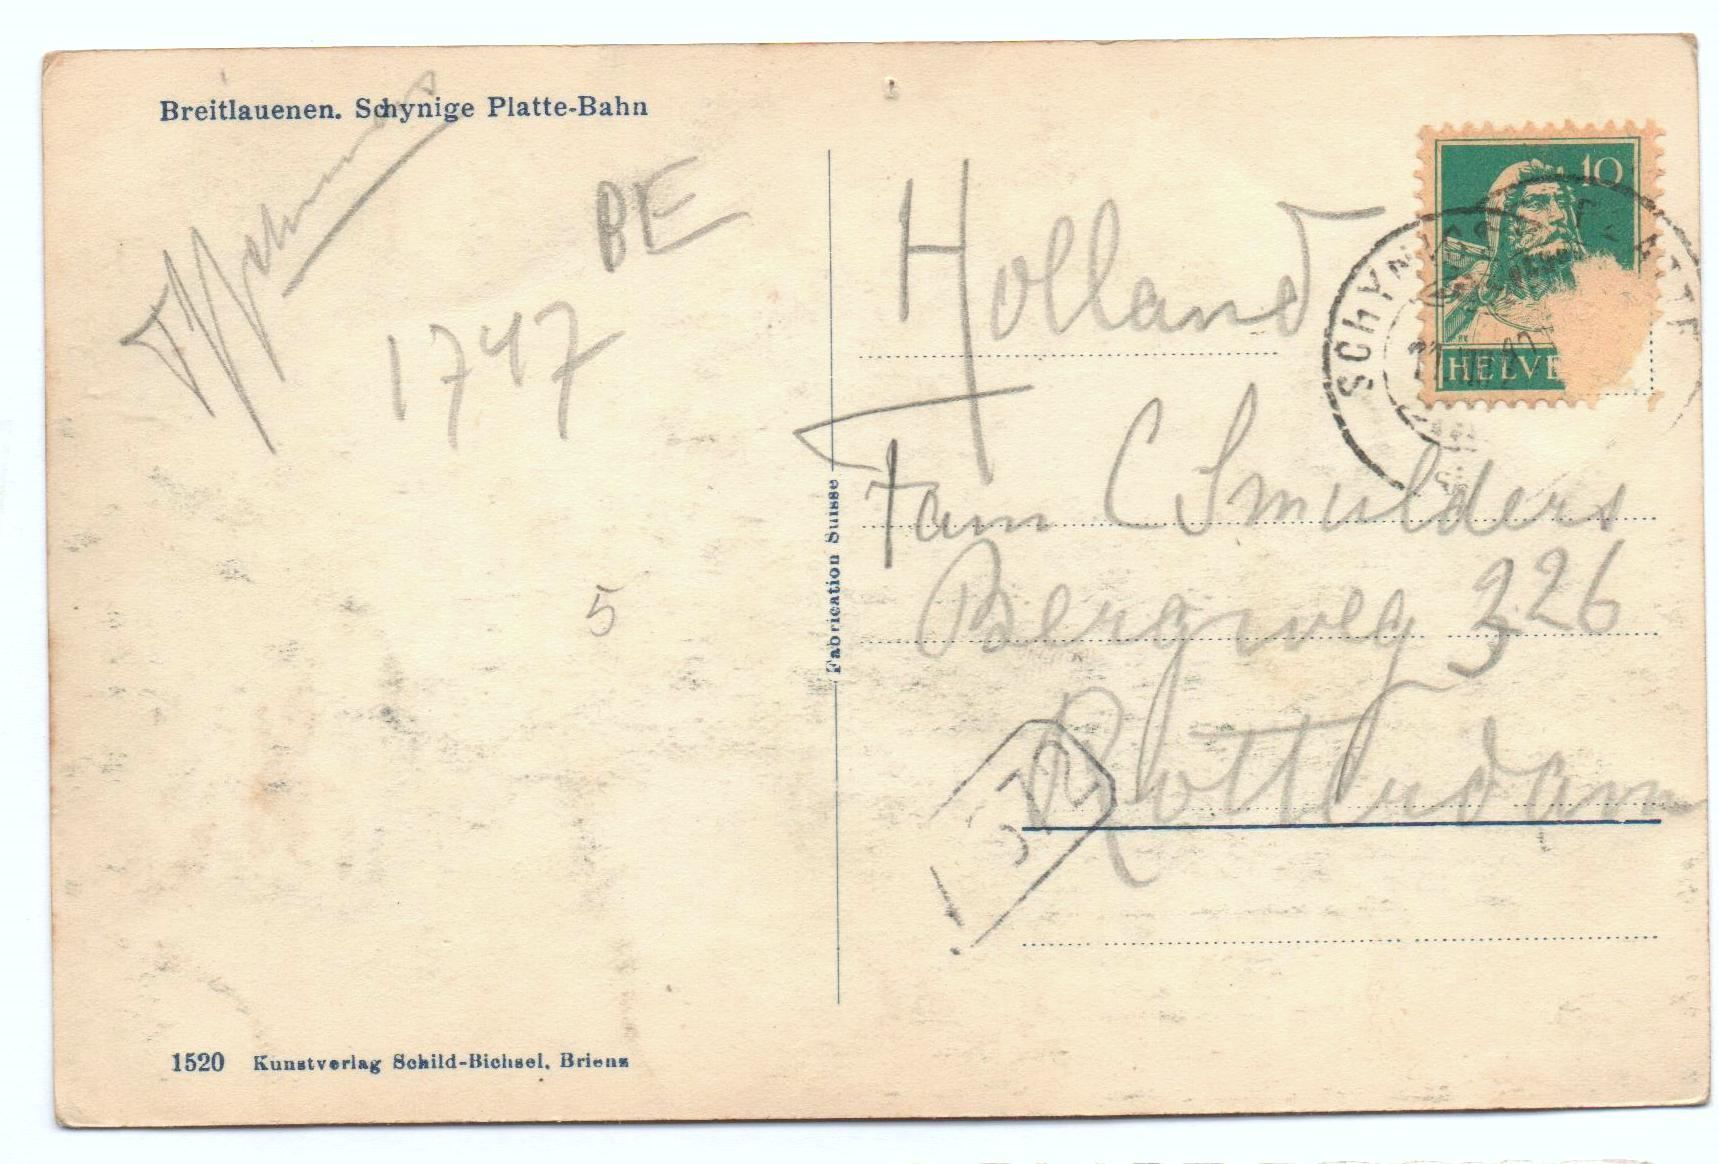 Breitlauenen. Schynige Platte-Bahn
BE
1747
5
1520 Kunstverlag Schild-Bichsel, Brienz
Fabrication Suisse
10
HELVE
SCHYNIGE PLATTE
Holland
Fam C Smulders
Bergweg 326
Rotterdam